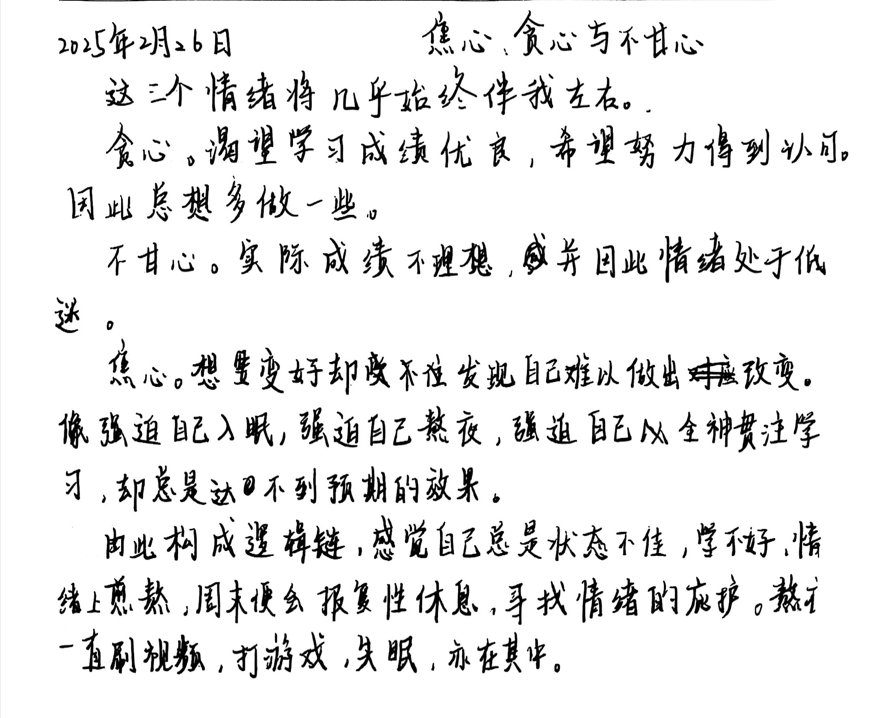 2025年2月26日 焦心、贪心与不甘心
这三个情绪将几乎始终伴我左右。
贪心。渴望学习成绩优良，希望努力得到认可。
因此总想多做一些。
不甘心。实际成绩不理想，并因此情绪处于低
迷。
焦心。想要变好却发现自己难以做出改变。
像强迫自己入眠，强迫自己熬夜，强迫自己以全神贯注学
习，却总是达不到预期的效果。
由此构成逻辑链，感觉自己总是状态不佳，学不好，情
绪上煎熬，周末便会报复性休息，寻找情绪的庇护。熬夜
一直刷视频，打游戏，失眠，亦在其中。